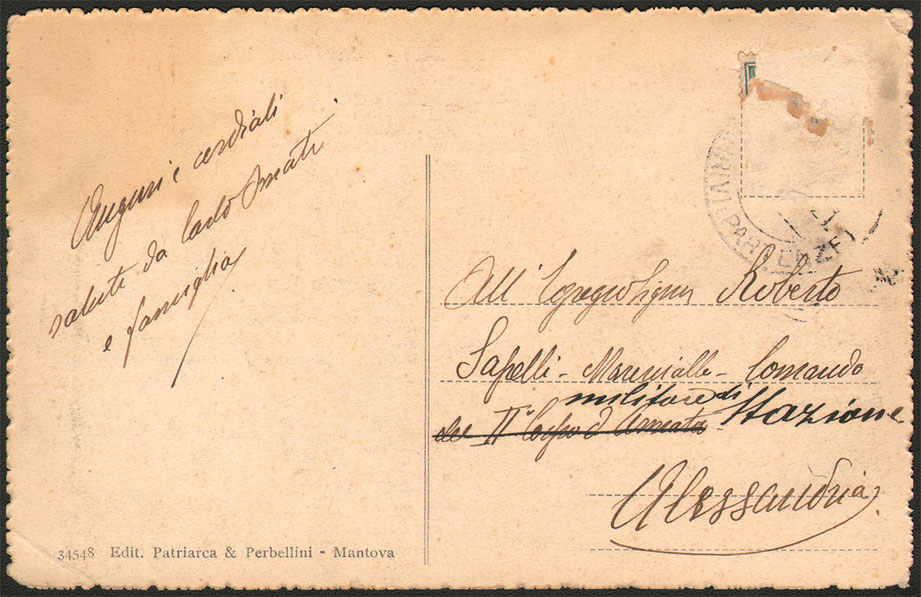 Auguri e cordiali
saluti da Carlo Amati
e famiglia
ARRIVI PARTENZE
All' Egregio Signor Roberto
Sapelli - Maresciallo - Comando
militare di Stazione
del II° Corpo d'Armata
Alessandria
34548 Edit. Patriarca & Perbellini - Mantova